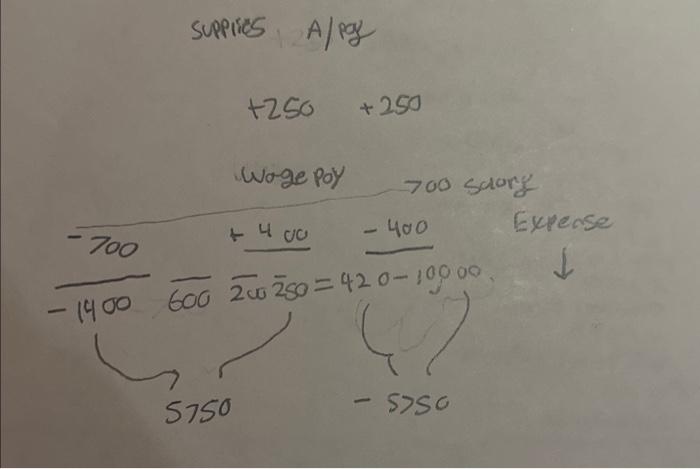 supplies A/pay
+250 +250
Wage pay 700 salary
-700 + 400 - 400 Expense
-1400 600 200 250 = 420 - 10,000.
5750 - 5750